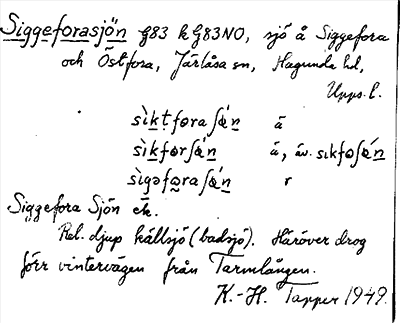 Siggeforasjön G83 k G83NO, sjö å Siggefora
och Östfora, Järlåsa sn, Hagunda hd,
Upps. l.
sìkt̩foraʃǿn ä
sìkforʃǿn ä, äv. sıkfoʃǿn
sìgəforaʃǿn r
Siggefora Sjön ek.
Rel. djup källsjö (badsjö). Häröver drog
förr vintervägen från Tarmlången.
K.-H. Tapper 1949.